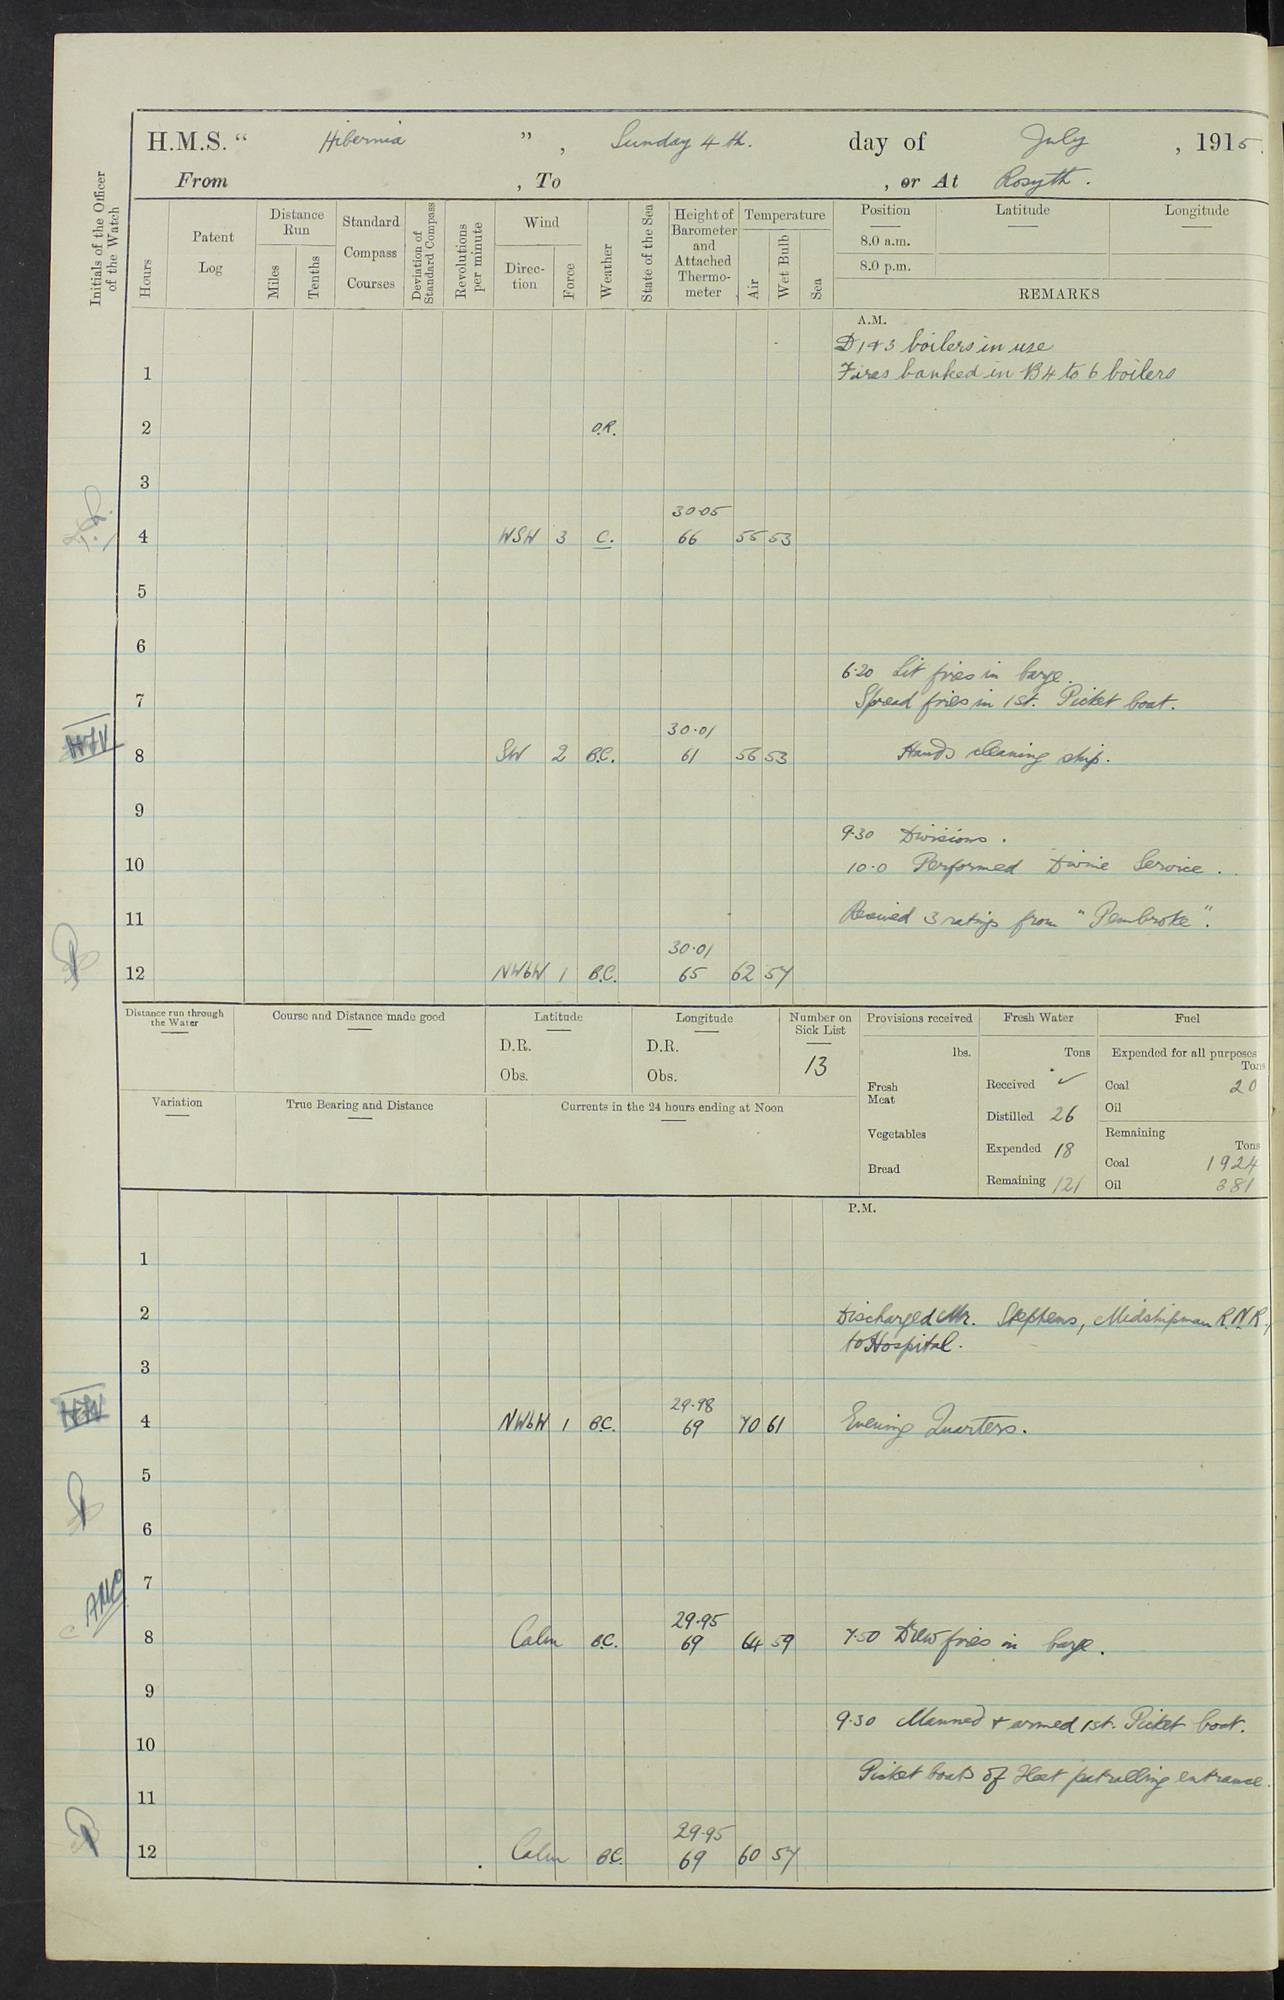 H.M.S. " Hibernia ", Sunday 4th. day of July, 1915.
From , To , or At Rosyth.
Initials of the Officer of the Watch
Hours
Patent Log
Distance Run
Miles
Tenths
Standard Compass Courses
Deviation of Standard Compass
Revolutions per minute
Wind
Direction
Force
Weather
State of the Sea
Height of Barometer and Attached Thermometer
Temperature
Air
Wet Bulb
Sea
Position Latitude Longitude
8.0 a.m.
8.0 p.m.
REMARKS
A.M.
D 1 & 3 boilers in use
1 Fires banked in B 4 to 6 boilers
2 O.R.
3
30.05
4 WSW 3 C. 66 55 53
5
6
6.20 Lit fires in barge.
7 Spread fires in 1st. Picket boat.
30.01
HFV 8 SW 2 B.C. 61 56 53 Hands cleaning ship.
9
9.30 Divisions.
10 10.0 Performed Divine Service.
11 Received 3 ratings from "Pembroke".
30.01
12 NWbW 1 B.C. 65 62 57
Distance run through the Water
Course and Distance made good
Latitude
D.R.
Obs.
Longitude
D.R.
Obs.
Number on Sick List
13
Provisions received
lbs.
Fresh Meat
Vegetables
Bread
Fresh Water
Tons
Received ✓
Distilled 26
Expended 18
Remaining 121
Fuel
Expended for all purposes
Tons
Coal 20
Oil
Remaining
Tons
Coal 1924
Oil 381
Variation
True Bearing and Distance
Currents in the 24 hours ending at Noon
P.M.
1
2 Discharged Mr. Stephens, Midshipman R.N.R.,
to Hospital.
3
29.98
HFV 4 NWbW 1 B.C. 69 70 61 Evening Quarters.
5
6
7
29.95
8 Calm B.C. 69 64 59 7.50 Drew fires in barge.
9
9.30 Manned & armed 1st. Picket boat.
10
Picket boats of Fleet patrolling entrance.
11
29.95
12 Calm B.C. 69 60 57